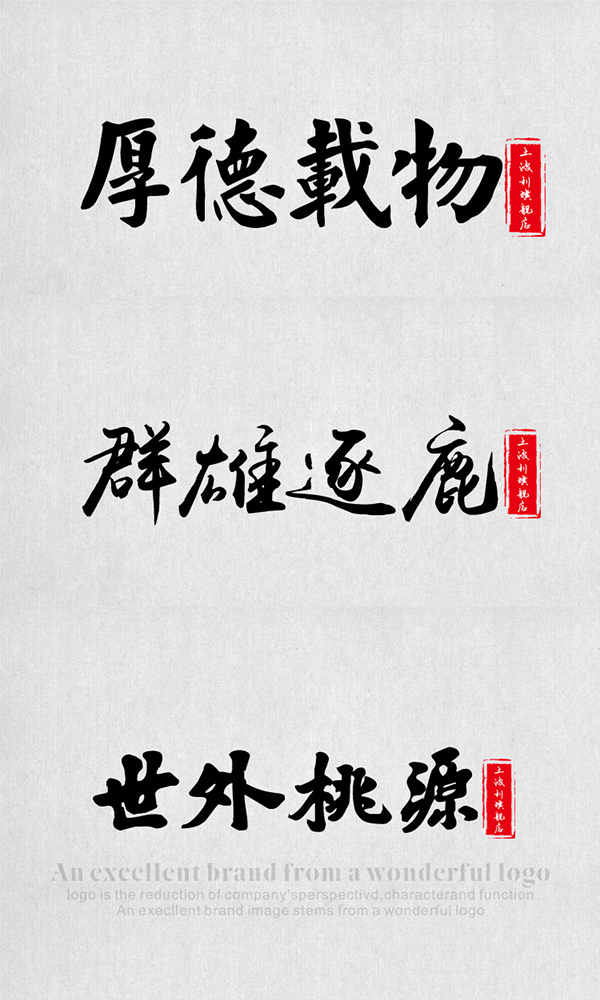 厚德載物
上波利旗舰店
群雄逐鹿
上波利旗舰店
世外桃源
上波利旗舰店
An excellent brand from a wonderful logo
logo is the reduction of company'sperspectivd,characterand function
An execllent brand image stems from a wonderful logo